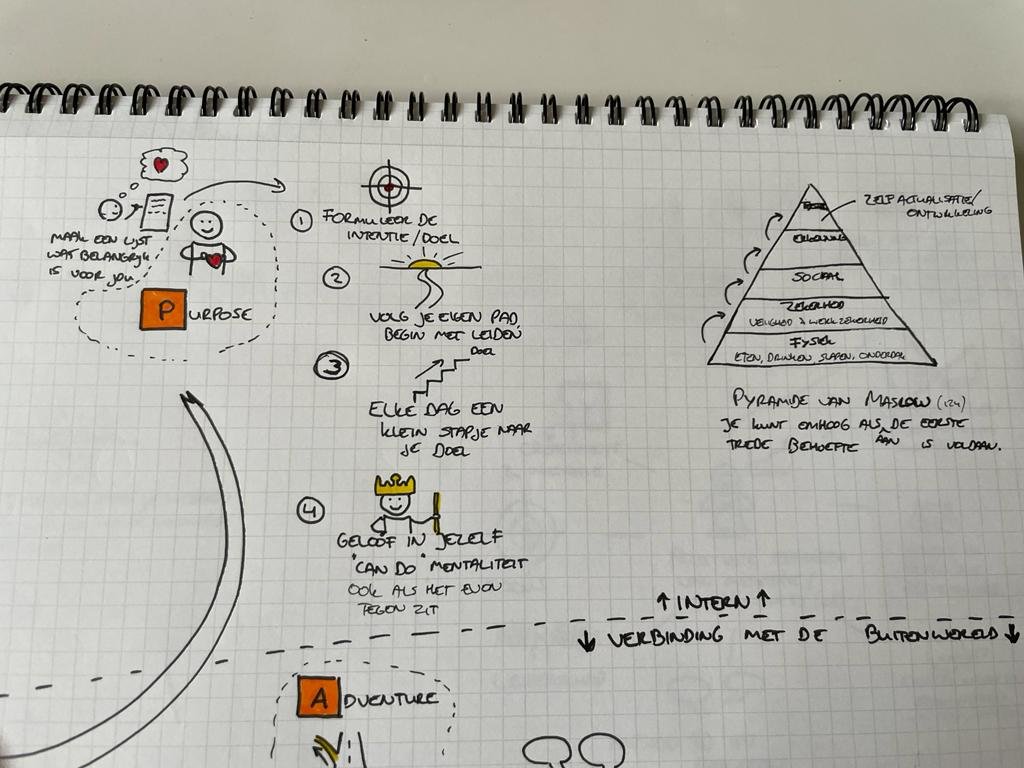 MAAK EEN LIJST
WAT BELANGRIJK
IS VOOR JOU
PURPOSE
1 FORMULEER DE
INTENTIE/DOEL
2
VOLG JE EIGEN PAD,
BEGIN MET LEIDEN,
3
DOEL
ELKE DAG EEN
KLEIN STAPJE NAAR
JE DOEL
4
GELOOF IN JEZELF
"CAN DO" MENTALITEIT
OOK ALS HET EVEN
TEGEN ZIT
ZELF ACTUALISATIE/
ONTWIKKELING
ERKENNING
SOCIAAL
ZEKERHEID
VEILIGHEID & WERK ZEKERHEID
FYSIEK
ETEN, DRINKEN, SLAPEN, ONDERDAK
PYRAMIDE VAN MASLOW (124)
JE KUNT OMHOOG ALS DE EERSTE
TREDE BEHOEFTE AAN IS VOLDAAN.
↑ INTERN ↑
↓ VERBINDING MET DE BUITENWERELD ↓
ADVENTURE